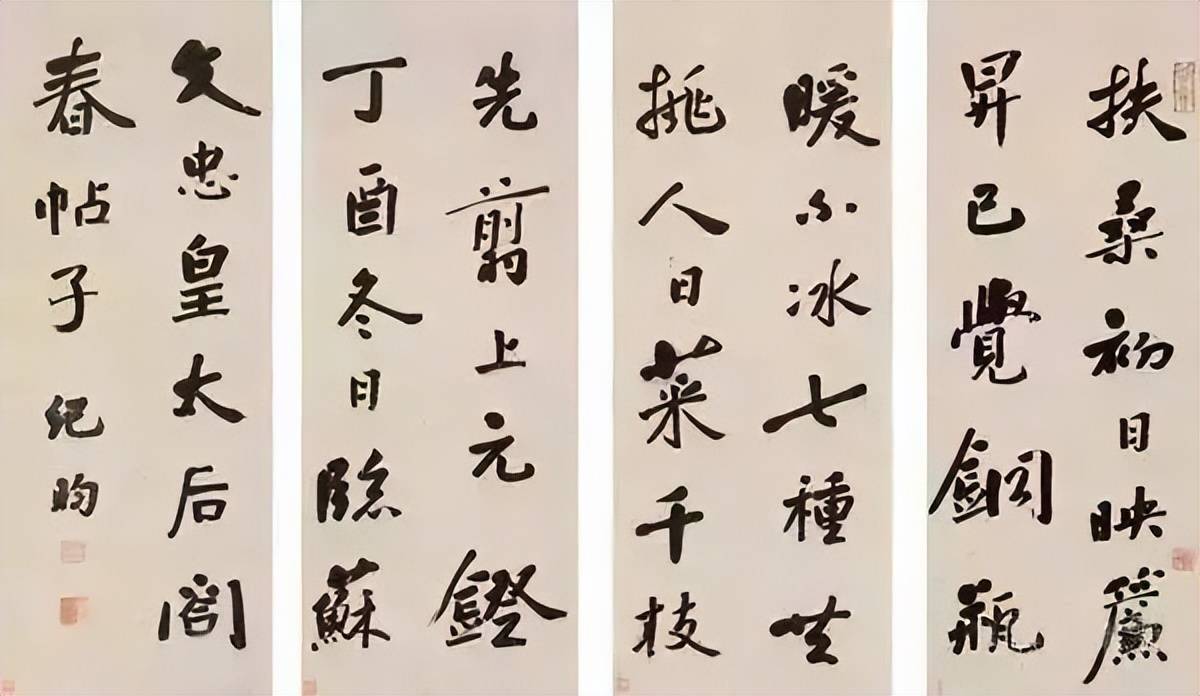 扶桑初日映簾
昇已覺銅瓶
暖不冰七種共
挑人日菜千枝
先翦上元鐙
丁酉冬日臨蘇
文忠皇太后閤
春帖子 紀昀